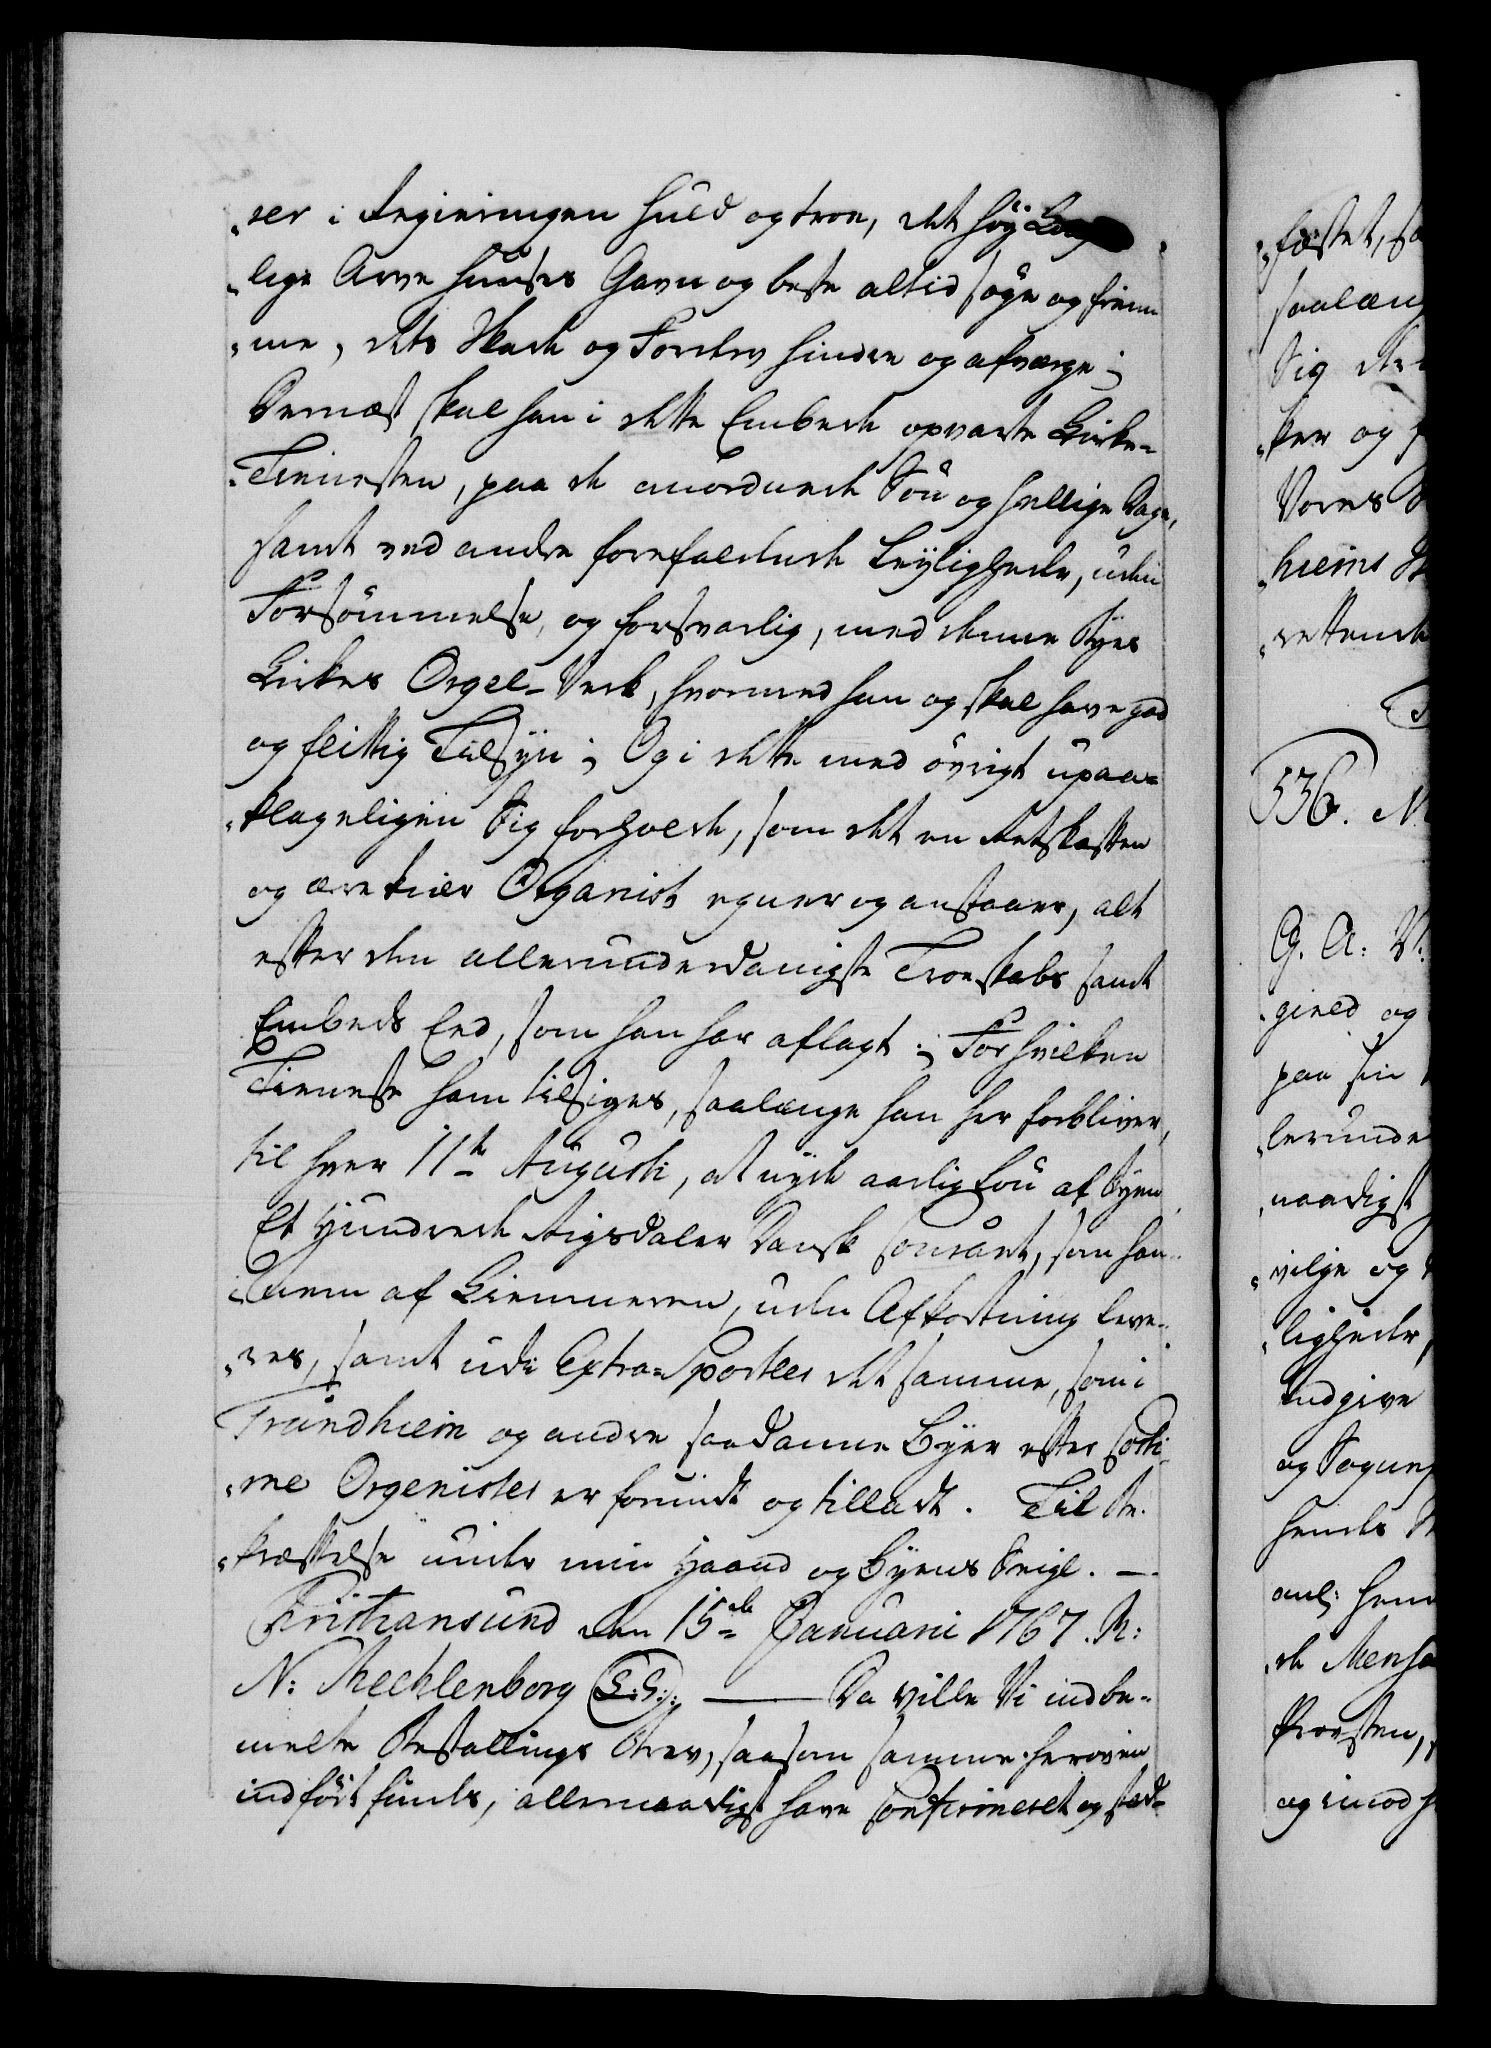 "ser i Regieringen huld og troe, det høy Lov
"lige Arve Huuses Gavn og beste altid søge og frem
"me, dets Skade og Forderv hindre og afværge;
Dernæst skal han i dette Embede opvarte Kirke-
"Tienesten, paa de anordnede Søn og hellige Dage,
samt ved andre forefaldende Leyligheder, uden
Forsømmelse, og forsvarlig, med denne Byes
Kirkes Orgel-Verk, hvormed han og skal have god
og flittig Tilsyn; Og i dette med øvrigt upaa-
"klageligen Sig forholde, som det en Retskaffen
og ærekier Organist egner og anstaaer, alt
efter den allerunderdanigste Troeskabs samt
Embeds Eed, som han har aflagt; For hvilken
Tieneste ham tilsiges, saalænge han her forbliver,
til hver 11te Augusti, at nyde aarlig Løn af Byen
Et Hundrede Rigsdaler Dansk Courant, som han
Dem af Kiemneren, uden Afkortning leve-
"res, samt udi Extra-Sportler det samme, som i
Trundhiem og andre saadanne Byer efter Costu
"me Orgenister er forundt og tilladt. Til Be-
"kræftelse under min Haand og Byens Seigl. —
Christiansund den 15de Januarii 1767. R:
N: Mechlenborg (L:S:) ——— Da ville Vi indbe-
melte Bestallings Brev, saasom samme heroven
indført findes, allernaadigst have Confirmeret og stad-
fæstet, sa
saalæng
Sig der
"ker og
Vores
"hiems
"rettende
536.
G. A: V:
gived og
paa sin
"lerunde
"naadigst
"vilge og
"ligheder,
indgive
og Sogne
hendes
anl: hen
de
Provsten,
og imod